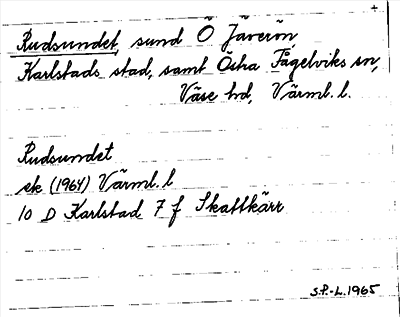 Rudsundet, sund Ö Jäverön,
Karlstads stad, samt Östra Fågelviks sn,
Väse hd, Värml. l.
Rudsundet
ek (1964) Värml. l
10 D Karlstad 7 f Skattkärr
S.P.-L.1965